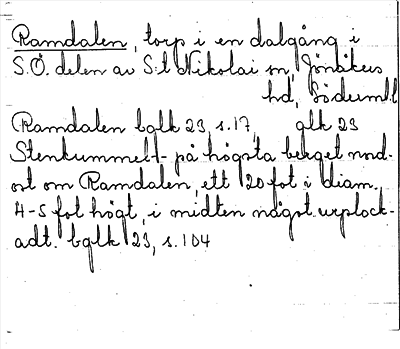 Ramdalen, torp i en dalgång i
S.Ö. delen av S:t Nikolai sn, Jönåkers
hd, Söderml
Ramdalen bglk 23, s.17, glk 23
Stenkummel-1- på högsta berget nord-
ost om Ramdalen, ett 20 fot i diam.
4-5 fot högt, i midten något urplock-
adt. bglk 23, s.104